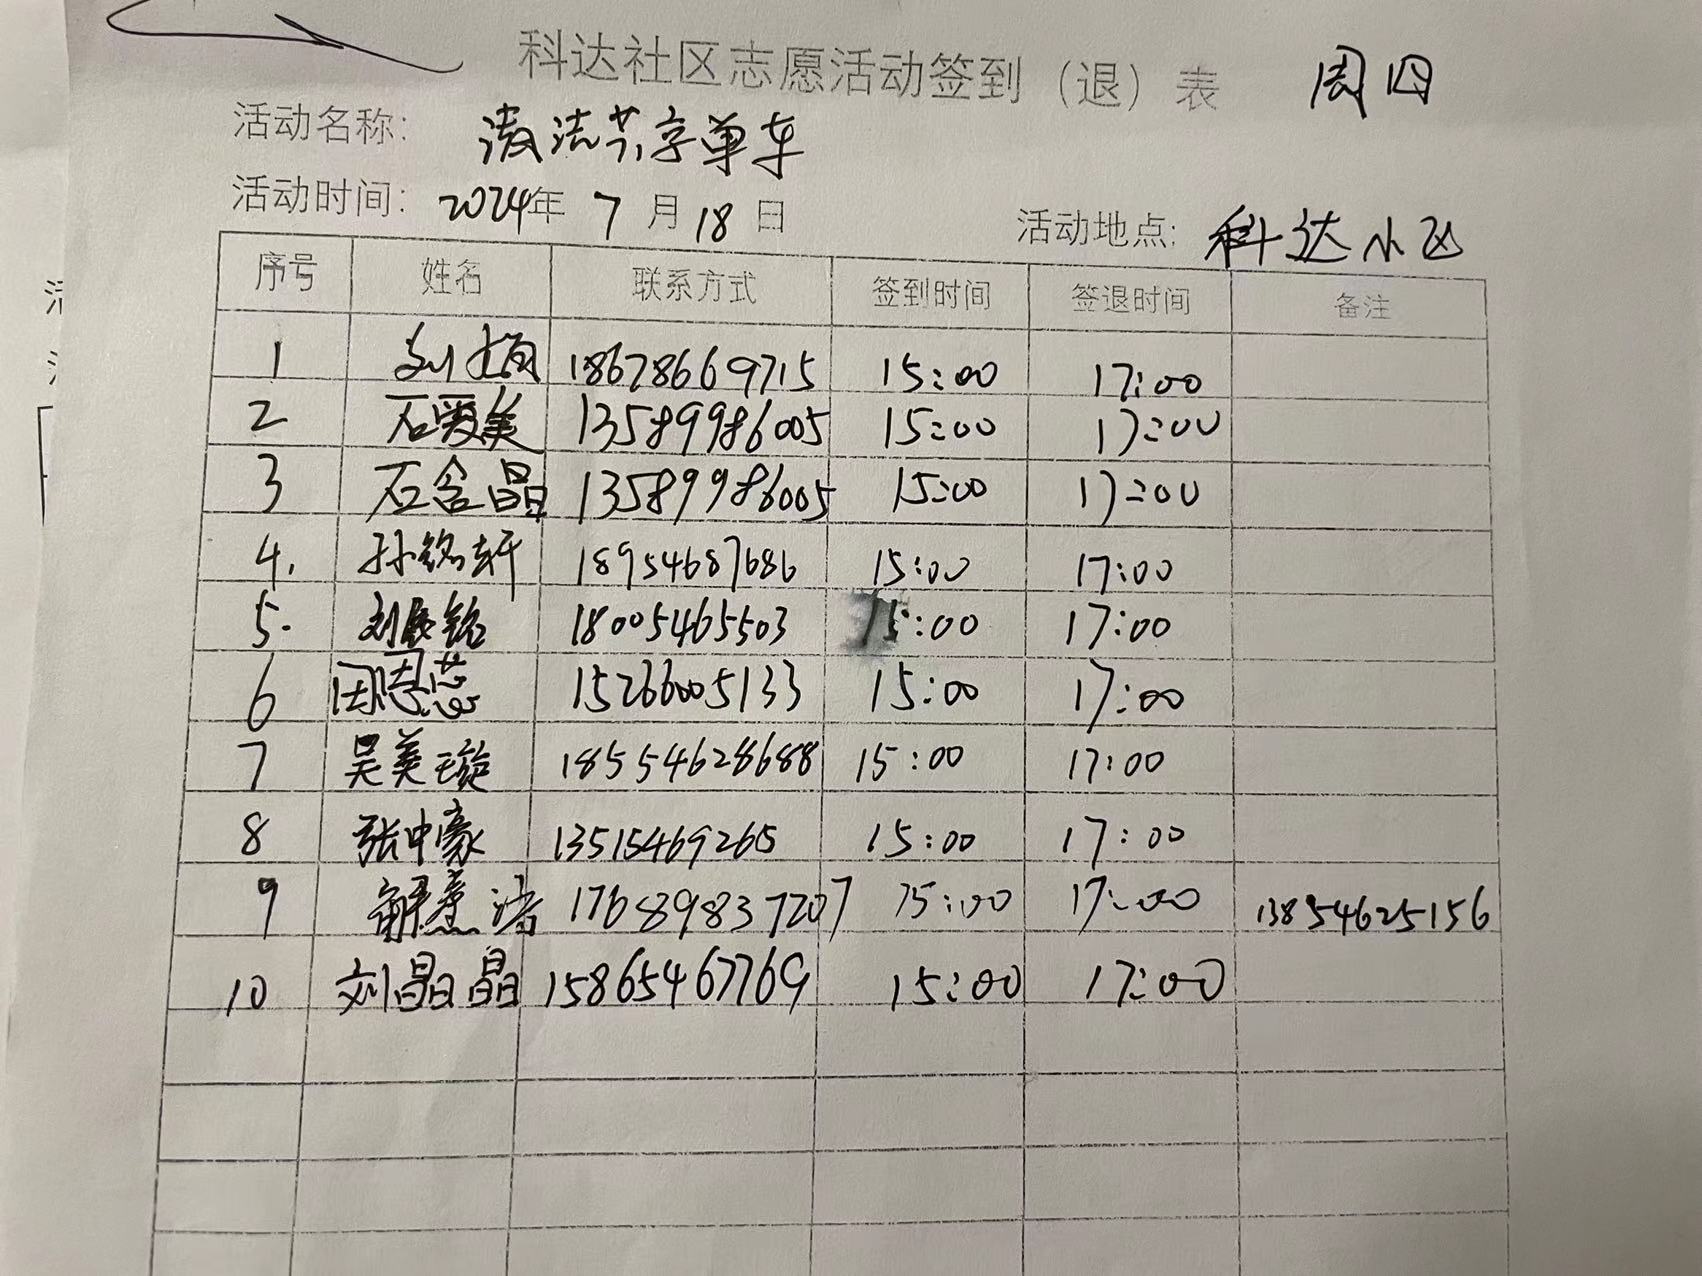 科达社区志愿活动签到（退）表 周四
活动名称： 清洁共享单车
活动时间： 2024年 7月18日 活动地点: 科达小区
序号 姓名 联系方式 签到时间 签退时间 备注
1 刘梅 18678669715 15:00 17:00
2 石爱美 13589986005 15:00 17:00
3 石含晶 13589986005 15:00 17:00
4. 孙铭轩 18954687686 15:00 17:00
5. 刘宸铭 18005465503 15:00 17:00
6 田恩蕊 15266005133 15:00 17:00
7 吴美璇 18554628688 15:00 17:00
8 张中豪 13515469265 15:00 17:00
9 17689837207 15:00 17:00 13854625156
10 刘晶晶 15865467769 15:00 17:00